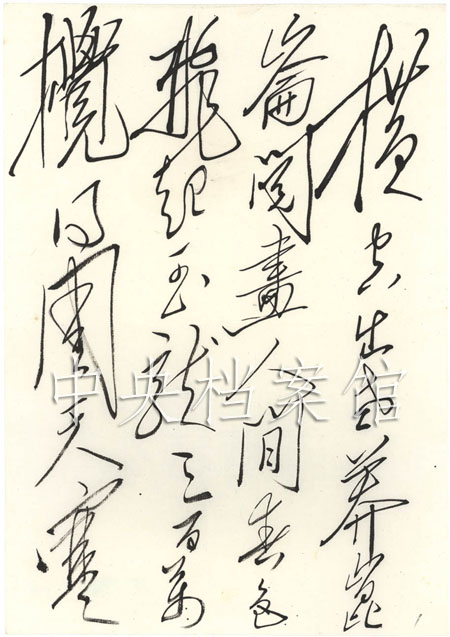 橫空出世莽崑
崙閱盡人間春色
飛起玉龍三百萬
攪得周天寒
中央档案馆